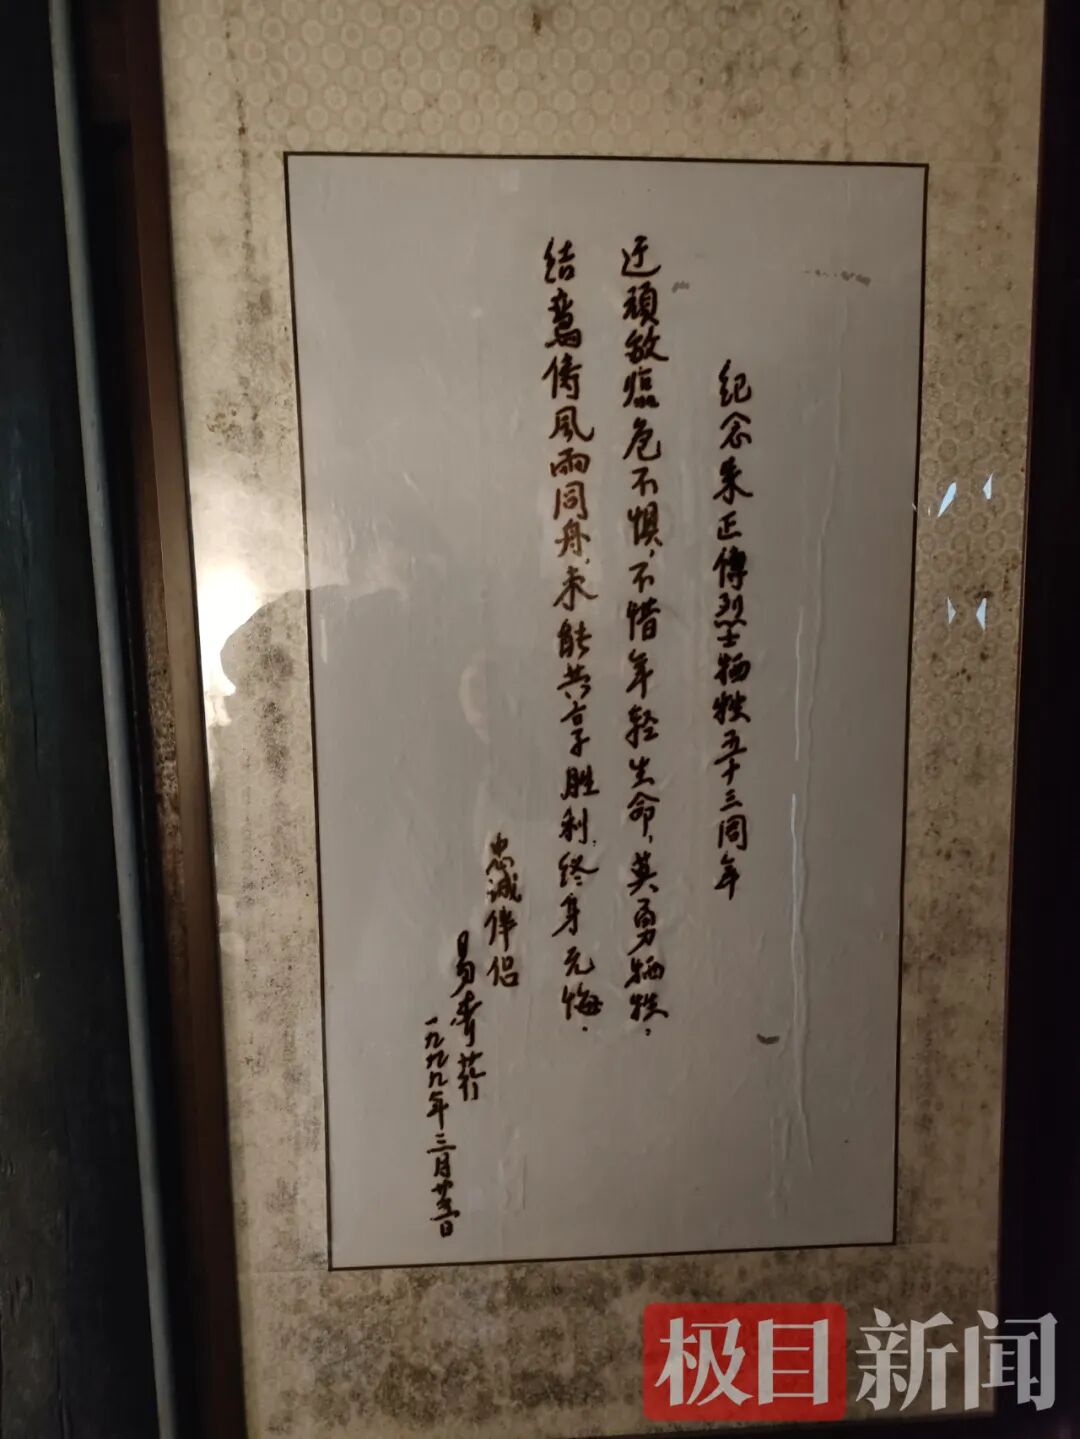 纪念朱正傳烈士牺牲五十三周年
迂頑敌臨危不惧,不惜年轻生命,英勇牺牲,
结鸾俦风雨同舟,未能共享胜利,终身无悔.
忠诚伴侣
易
一九九九年三月廿 日
极目新闻